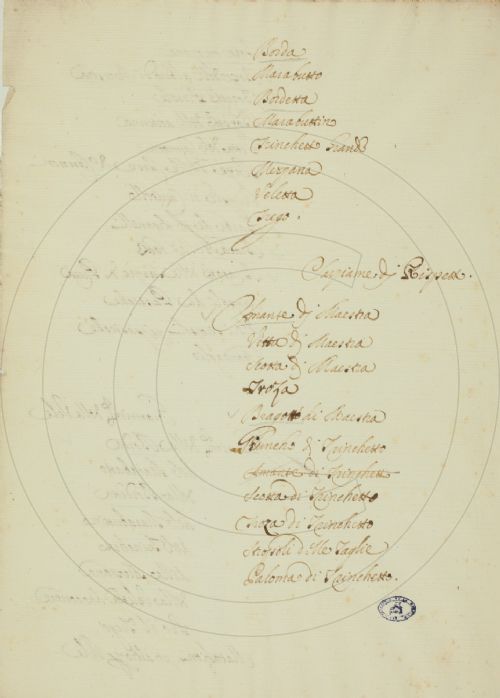 Borda
Marabutto
Bordetta
Marabuttino
Trinchetto Grande
Mezzana
Veletta
Trego.
di Rispetto.
Amante di Maestra
Vetta di Maestra
Scotta di Maestra
Troza
Bragotto di Maestra
di Trinchetto
Amante di Trinchetto
Scotta di Trinchetto
Troza di Trinchetto
delle Taglie
Paloma di Trinchetto.